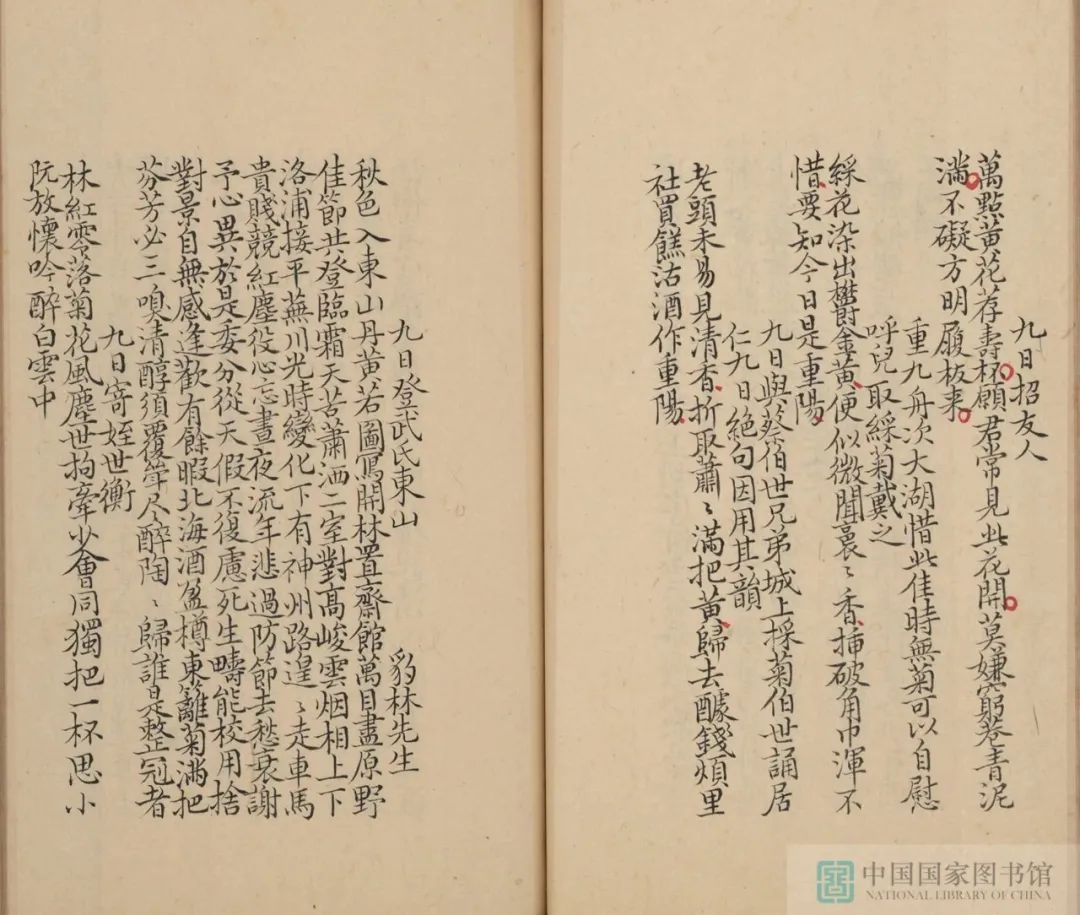 九日招友人
萬點黄花荐壽杯願君常見此花開莫嫌窮巷青泥
滿不礙方明履板来
重九舟次大湖惜此佳時無菊可以自慰
呼兒取綵菊戴之
綵花染出欝金黄便似微聞裛〻香揷破角巾渾不
惜要知今日是重陽
九日與蔡伯世兄弟城上採菊伯世誦居
仁九日絶句因用其韻
老頭未易見清香折取蕭〻滿把黄歸去醵錢煩里
社買餻沽酒作重陽
九日登武氏東山 豹林先生
秋色入東山丹黄若圖寫開林置齋館萬目盡原野
佳節共登臨霜天苦蕭洒二室對高峻雲烟相上下
洛浦接平蕪川光時變化下有神州路遑〻走車馬
貴賤競紅塵役心忘晝夜流年悲過防節去愁衰謝
予心異於是委分從天假不復慮死生疇能校用捨
對景自無感逢歡有餘暇北海酒盈樽東籬菊滿把
芬芳必三嗅清醇須覆斚尽醉陶〻歸誰是整冠者
九日寄姪世衡
林紅零落菊花風塵世拘牽少會同獨把一杯思小
阮放懷吟醉白雲中
中国国家图书馆
NATIONAL LIBRARY OF CHINA